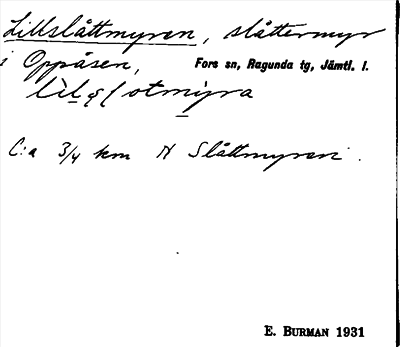 Lillslåttmyren, slåttermyr
i Oppåsen, Fors sn, Ragunda tg, Jämtl. l.
C:a 3/4 km N Slåttmyren.
E. BURMAN 1931